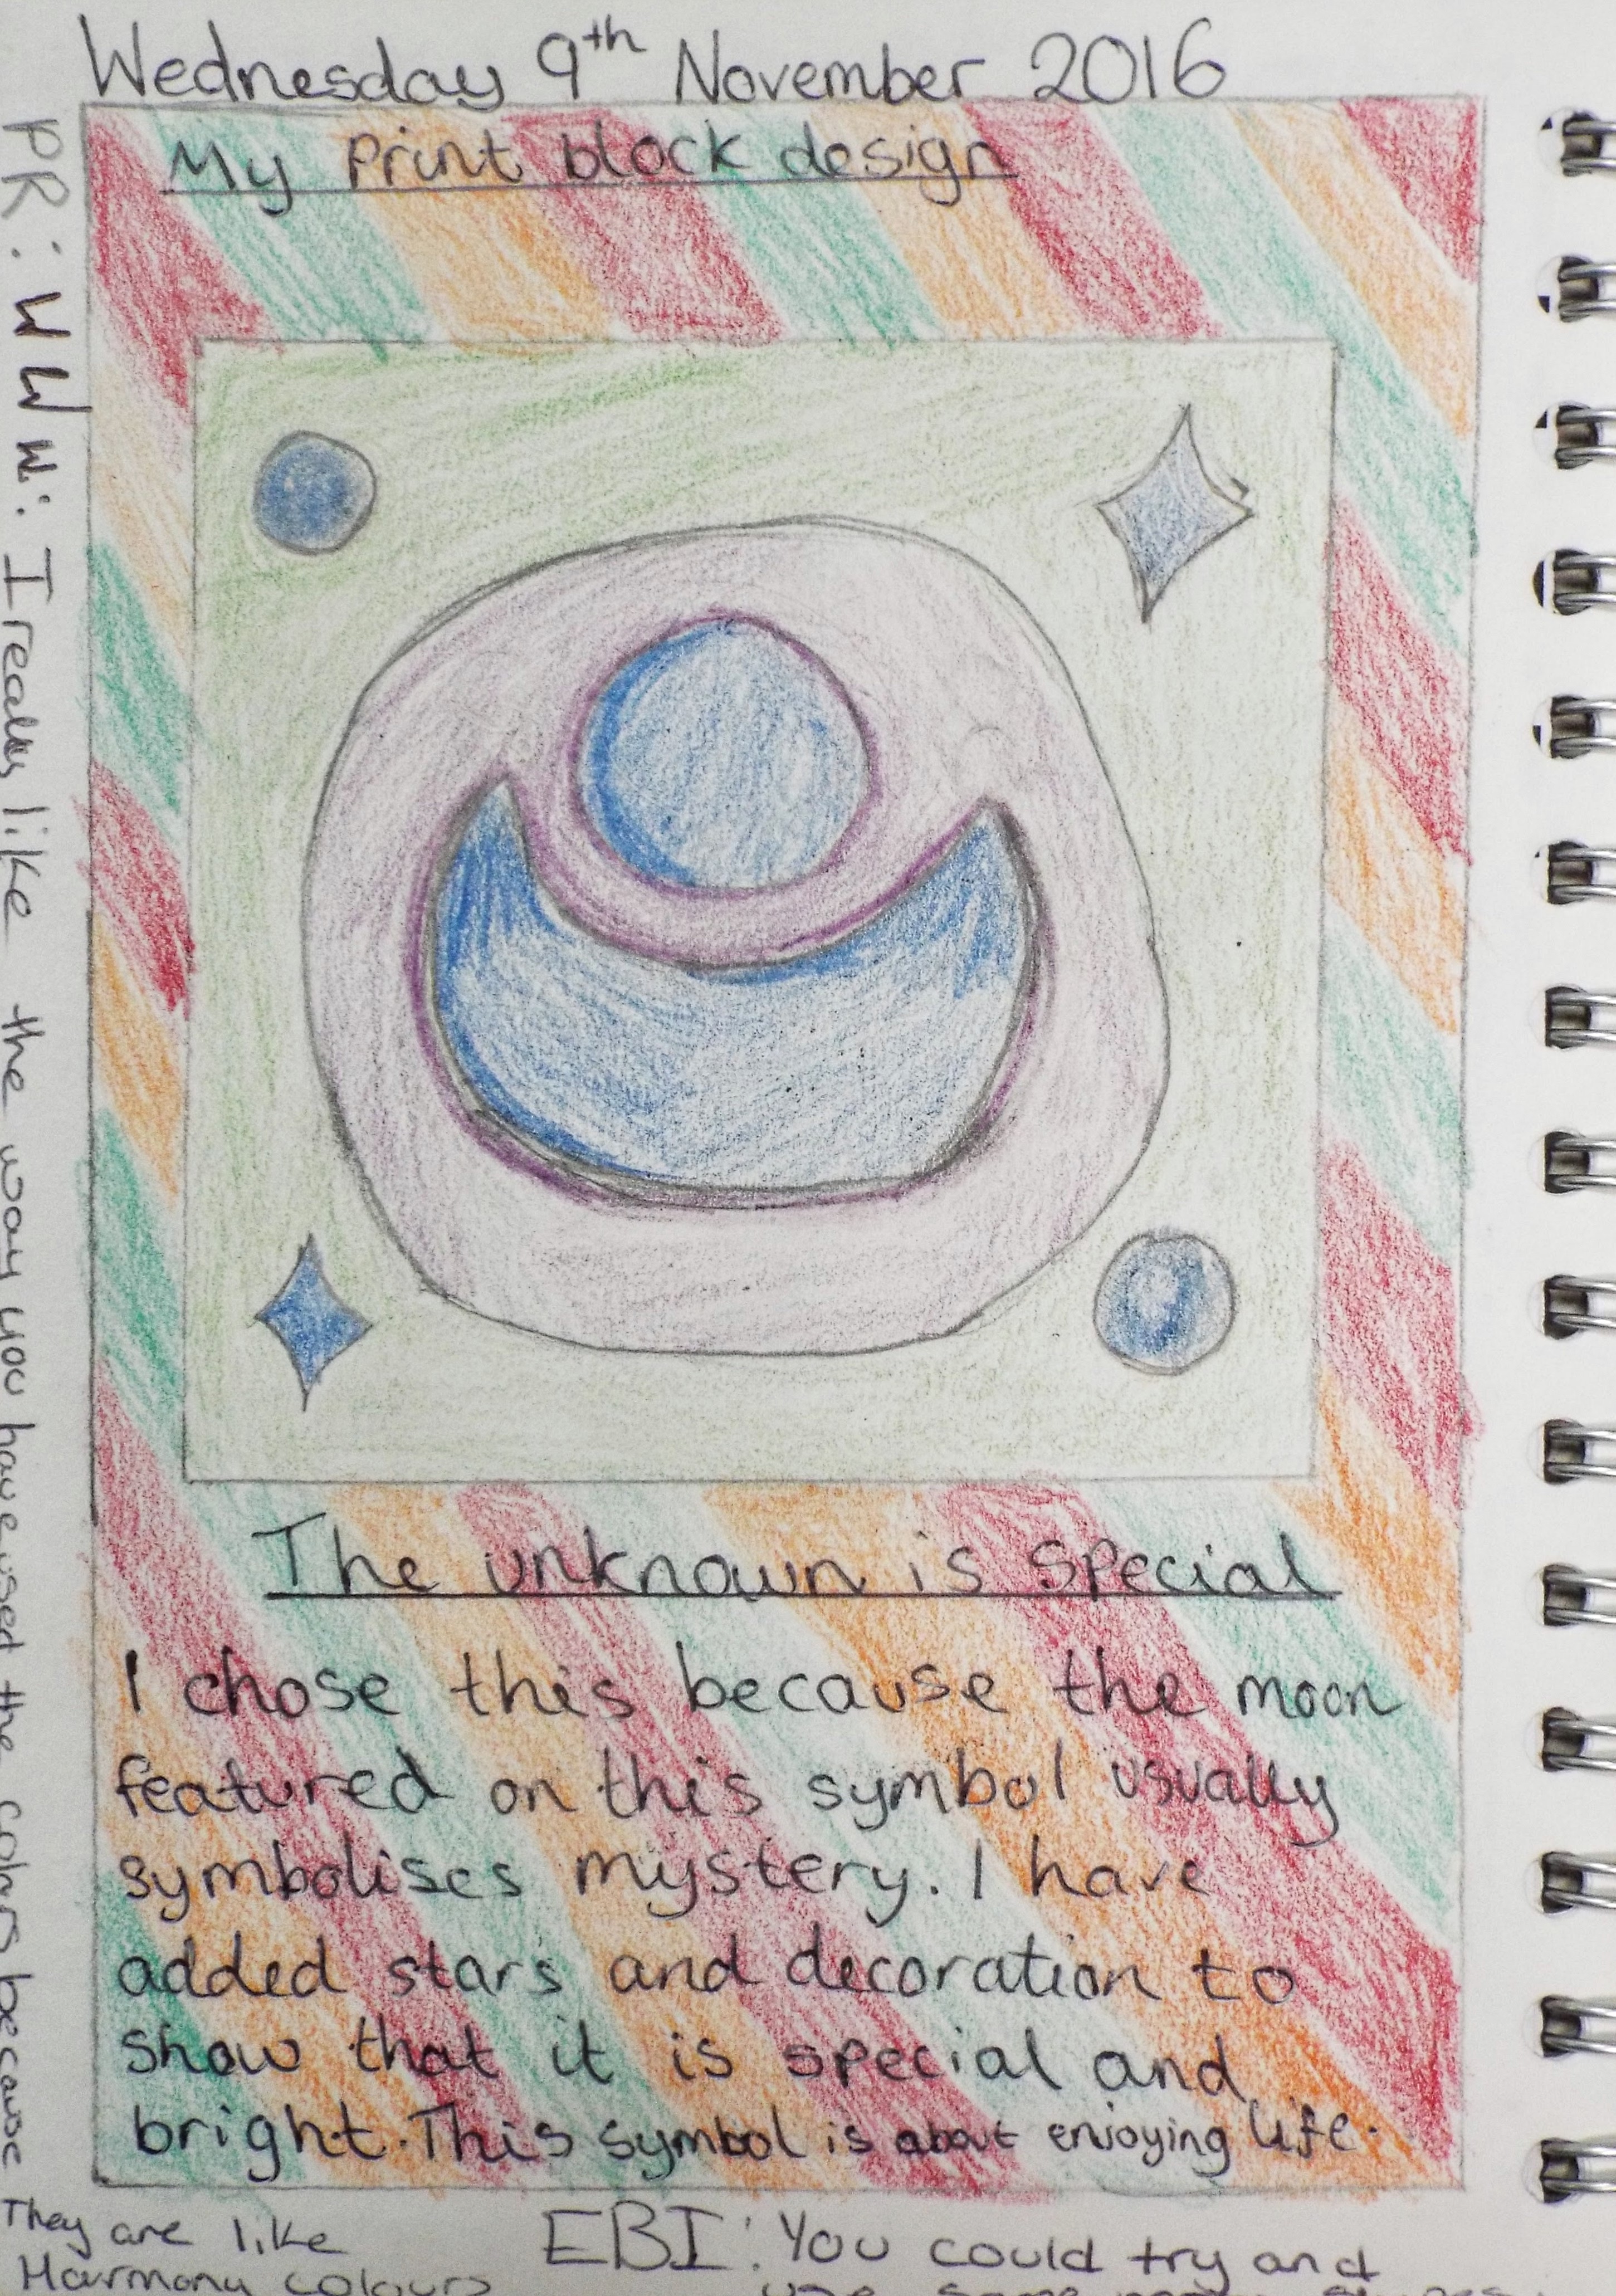 Wednesday 9th November 2016
My Print block design
The unknown is special
I chose this because the moon
featured on this symbol usually
symbolises mystery. I have
added stars and decoration to
show that it is special and
bright. This symbol is about enjoying life.
PR: WWW: I really like the way you have used the colours because
They are like
Harmony colours
EBI: You could try and
use some more